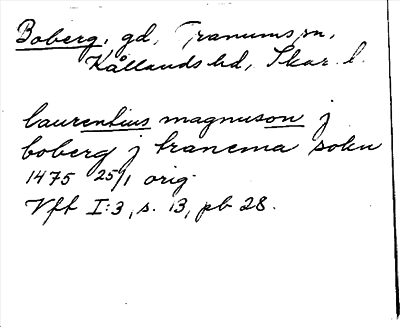 Boberg, gd, Tranums sn,
Kållands hd, Skar. l.
laurentius magnuson j
boberg j tranema sokn
1475 25/1 orig.
Vft I:3, s. 13, pb 28.